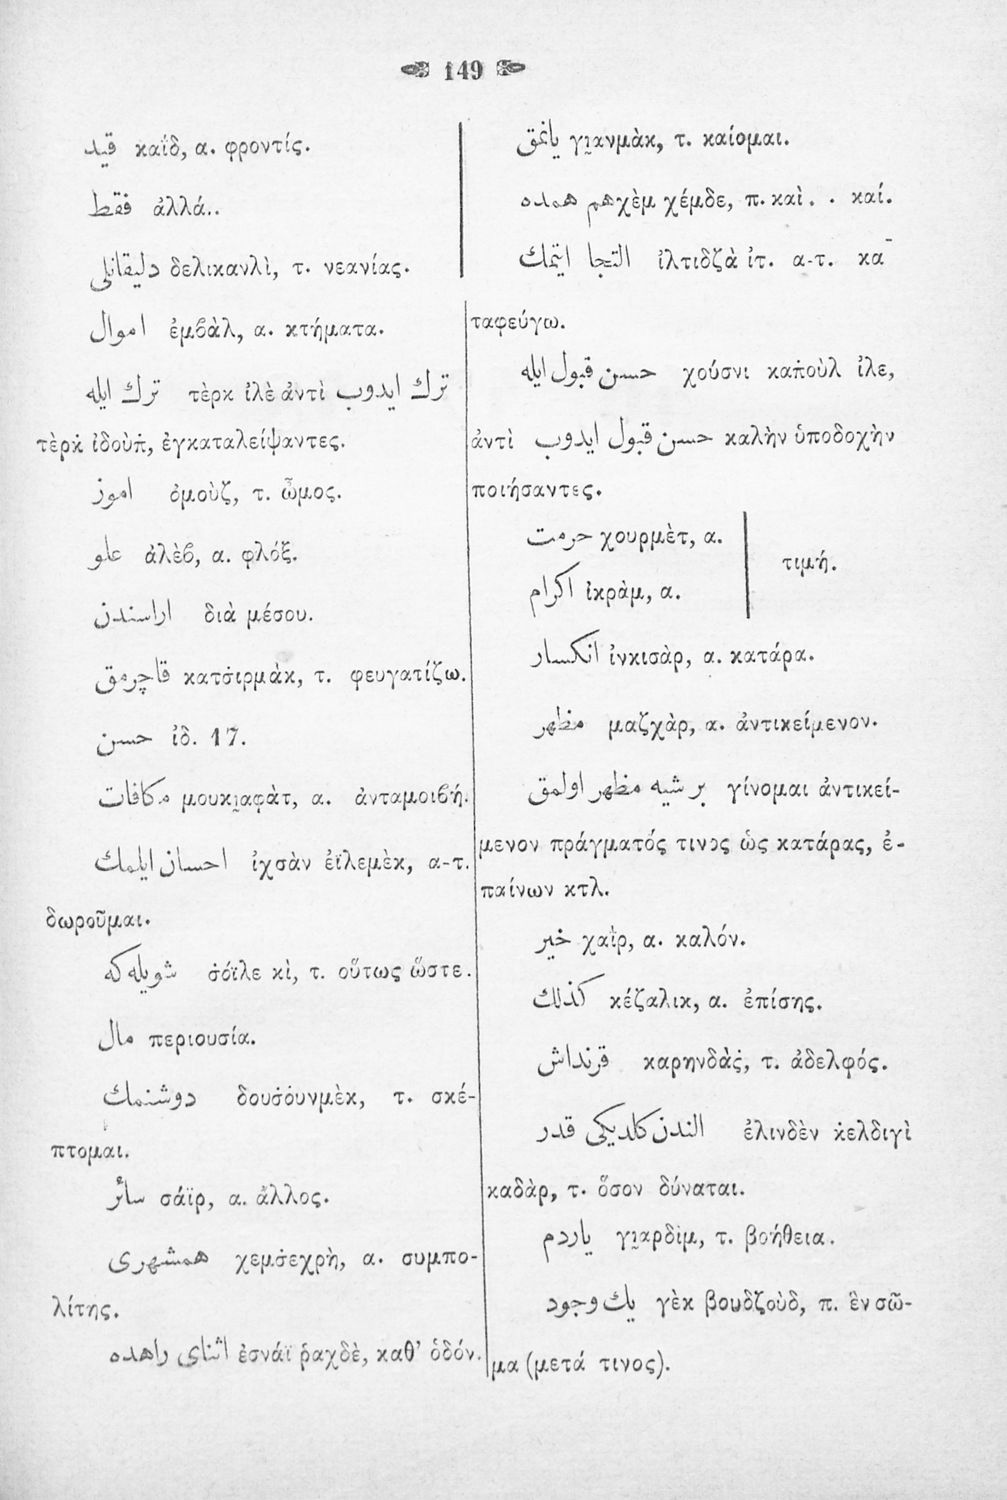 149
قيد καΐδ, α. φροντίς.
فقط ἀλλά..
دليقانلى δελικανλὶ, τ. νεανίας.
اموال ἐμβὰλ, α. κτήματα.
ترك ايله τὲρκ ἰλὲ ἀντὶ ترك ايدوب
τὲρκ̇ ἰδοὺπ̇, ἐγκαταλείψαντες.
اموز ὀμοὺζ, τ. ὦμος.
علو ἀλὲβ, α. φλόξ.
اراسندن διὰ μέσου.
قاچرمق κατσ̇ιρμὰκ, τ. φευγατίζω.
حسن ἰδ. 17.
مكافات μουκιαφὰτ, α. ἀνταμοιβή.
احسان ايلمك ἰχσὰν ἐϊλεμὲκ, α-τ.
δωροῦμαι.
شويله كه σ̇όϊλε κὶ, τ. οὕτως ὥστε.
مال περιουσία.
دوشنمك δουσ̇ουνμὲκ, τ. σκέ-
πτομαι.
سائر σάϊρ, α. ἄλλος.
همشهرى χεμσ̇εχρὴ, α. συμπο-
λίτης.
اثناى راهده ἐσνάϊ ῥαχδὲ, καθ’ ὁδόν.
يانمق γιανμὰκ, τ. καίομαι.
هم همده χὲμ χέμδε, π. καὶ. . καί.
التجا ايتمك ἰλτιδζὰ ἰτ. α-τ. κα-
ταφεύγω.
حسن قبول ايله χούσνι καπ̇οὺλ ἰλε,
ἀντὶ حسن قبول ايدوب καλὴν ὑποδοχὴν
ποιήσαντες.
حرمت χουρμὲτ, α.
اكرام ἰκρὰμ, α.
τιμή.
انكسار ἰνκισὰρ, α. κατάρα.
مظهر μαζχὰρ, α. ἀντικείμενον.
بر شيه مظهر اولمق γίνομαι ἀντικεί-
μενον πράγματός τινος ὡς κατάρας, ἐ-
παίνων κτλ.
خير χαΐρ, α. καλόν.
كذلك κέζαλικ, α. ἐπίσης.
قرنداش καρηνδὰσ̇, τ. ἀδελφός.
الندن كلديكى قدر ἐλινδὲν κ̇ελδιγὶ
καδὰρ, τ. ὅσον δύναται.
ياردم γιαρδὶμ, τ. βοήθεια.
يك وجود γὲκ βουδζοὺδ, π. ἓν σῶ-
μα (μετά τινος).